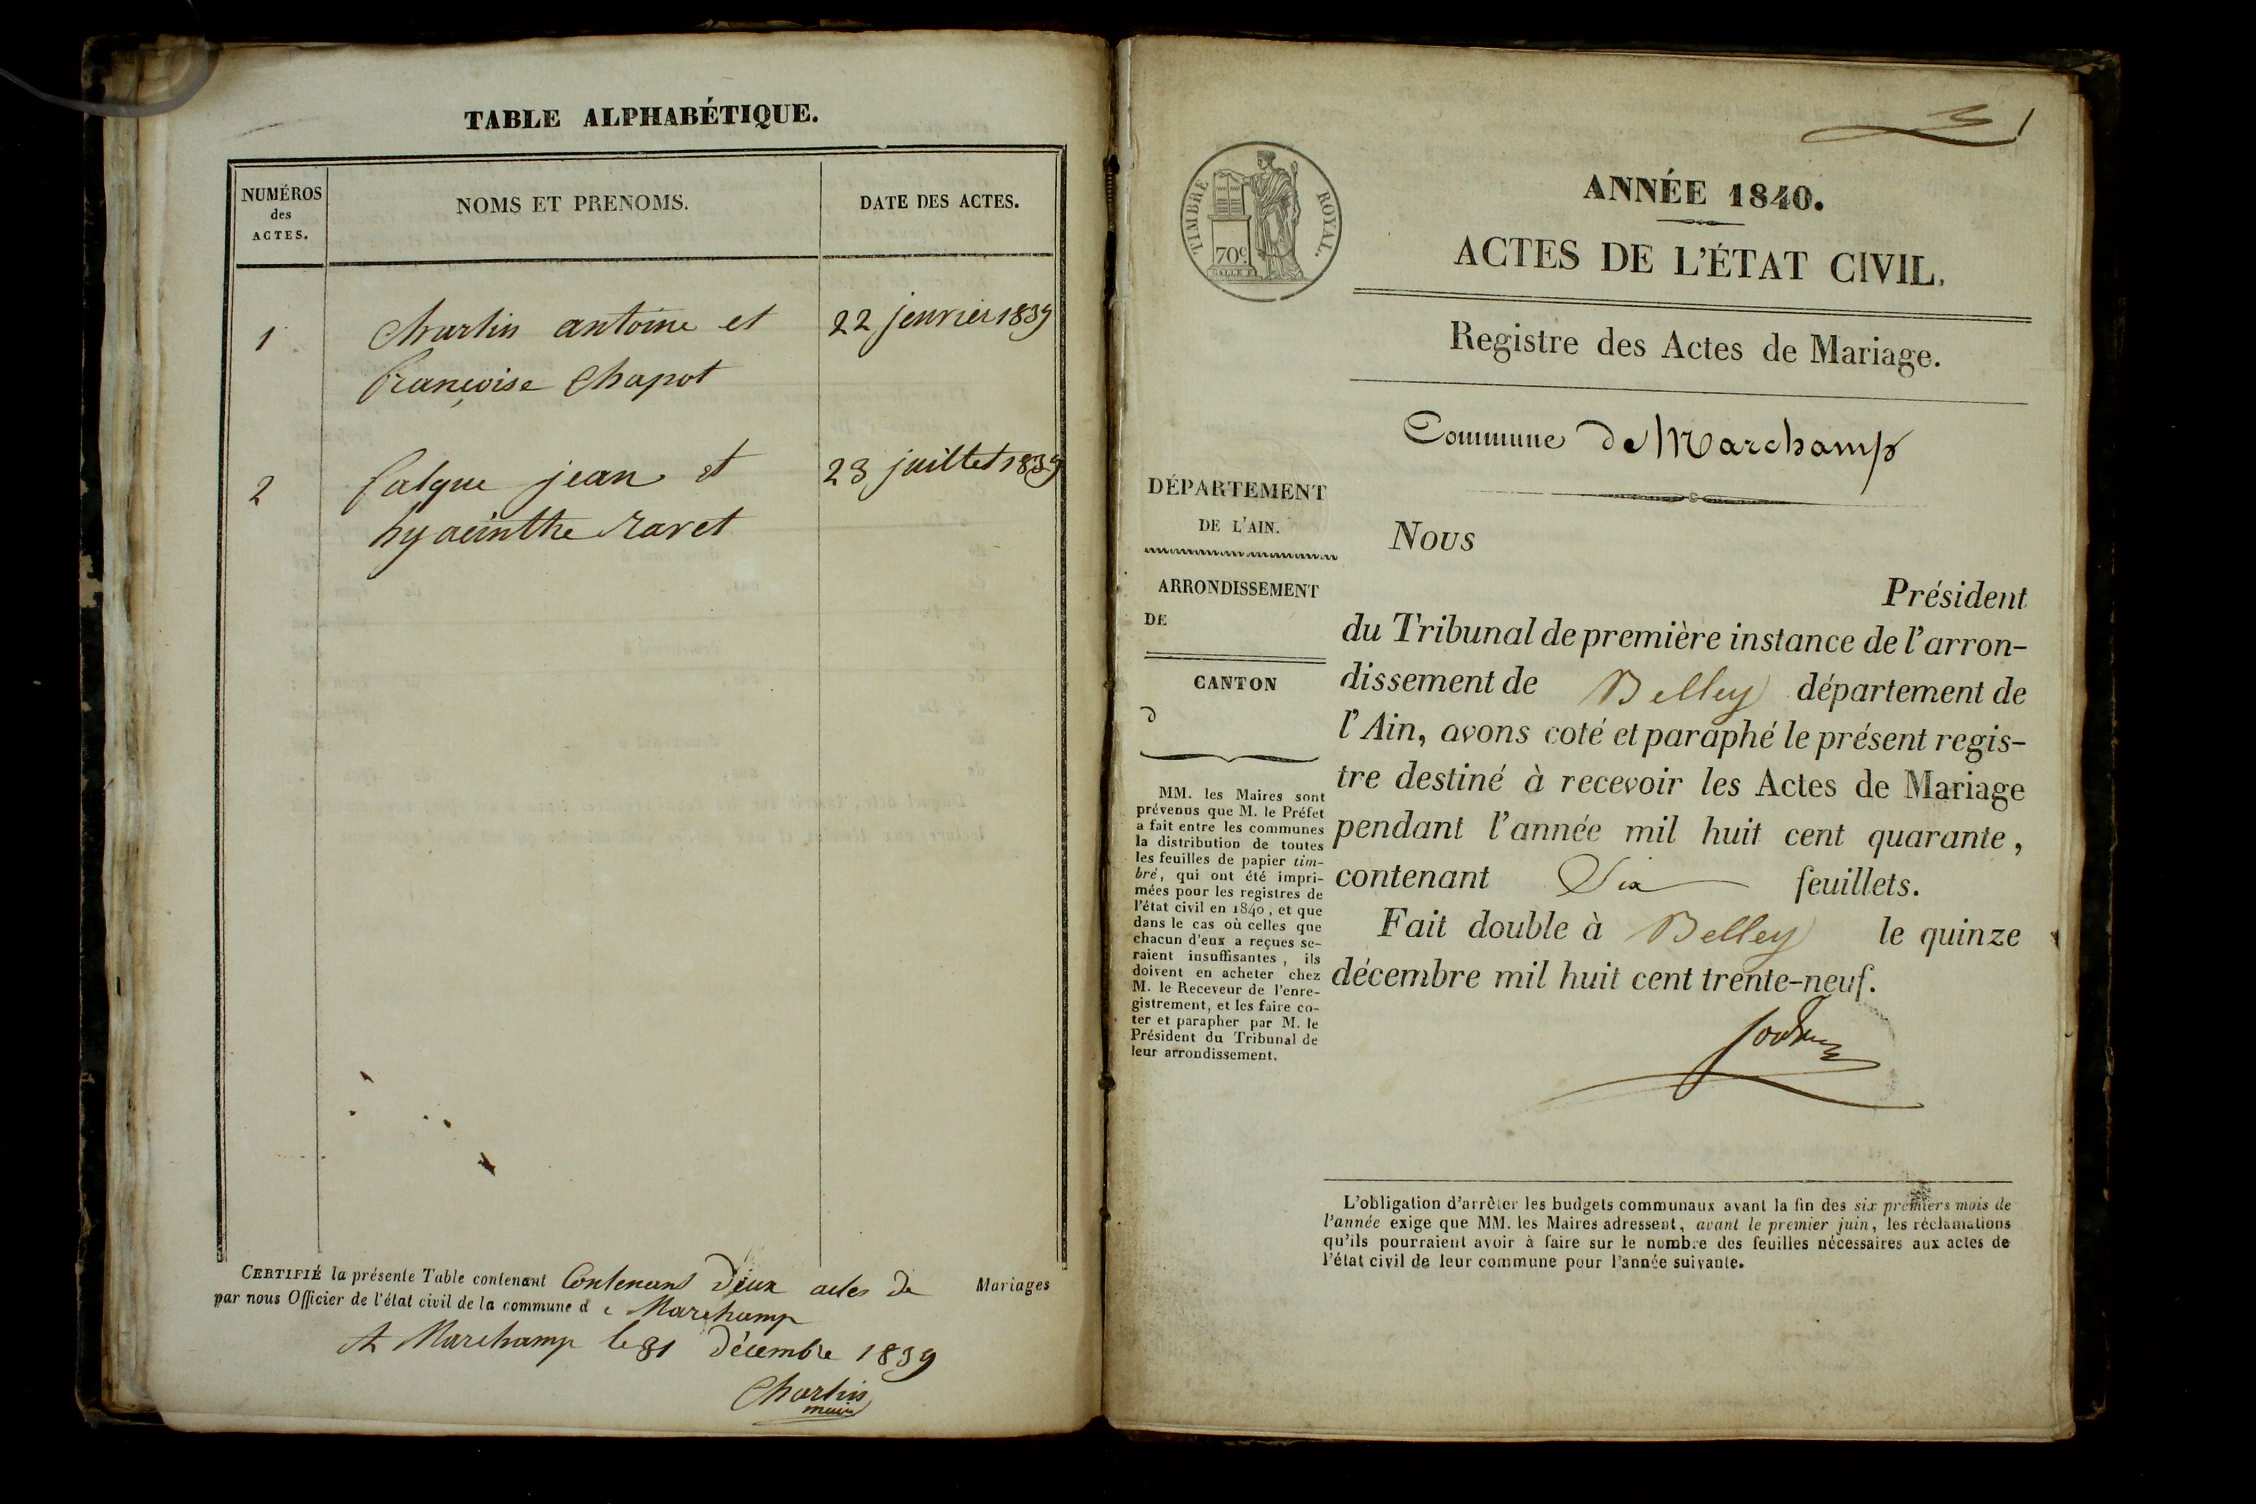 TABLE ALPHABÉTIQUE.
NUMÉROS
des
ACTES.
NOMS ET PRENOMS.
DATE DES ACTES.
1
Charlin antoine et
22 janvier 1839
françoise Chapot
2
falque jean et
23 juillet 1839
hyacinthe ravet
CERTIFIÉ la présente Table contenant Contenant deux actes de Mariages
par nous Officier de l'état civil de la commune d e Marchamp
A Marchamp le 31 décembre 1839
Charlin
maire
1
TIMBRE ROYAL.
70c
ANNÉE 1840.
ACTES DE L'ÉTAT CIVIL.
Registre des Actes de Mariage.
Commune de Marchamp
DÉPARTEMENT
DE L'AIN.
ARRONDISSEMENT
DE
CANTON
d
MM. les Maires sont
prévenus que M. le Préfet
a fait entre les communes
la distribution de toutes
les feuilles de papier tim-
bré, qui ont été impri-
mées pour les registres de
l'état civil en 1840, et que
dans le cas où celles que
chacun d'eux a reçues se-
raient insuffisantes, ils
doivent en acheter chez
M. le Receveur de l'enre-
gistrement, et les faire co-
ter et parapher par M. le
Président du Tribunal de
leur arrondissement.
Nous
Président
du Tribunal de première instance de l'arron-
dissement de Belley département de
l'Ain, avons coté et paraphé le présent regis-
tre destiné à recevoir les Actes de Mariage
pendant l'année mil huit cent quarante,
contenant Six feuillets.
Fait double à Belley le quinze
décembre mil huit cent trente-neuf.
L'obligation d'arrêter les budgets communaux avant la fin des six premiers mois de
l'année exige que MM. les Maires adressent, avant le premier juin, les réclamations
qu'ils pourraient avoir à faire sur le nombre des feuilles nécessaires aux actes de
l'état civil de leur commune pour l'année suivante.